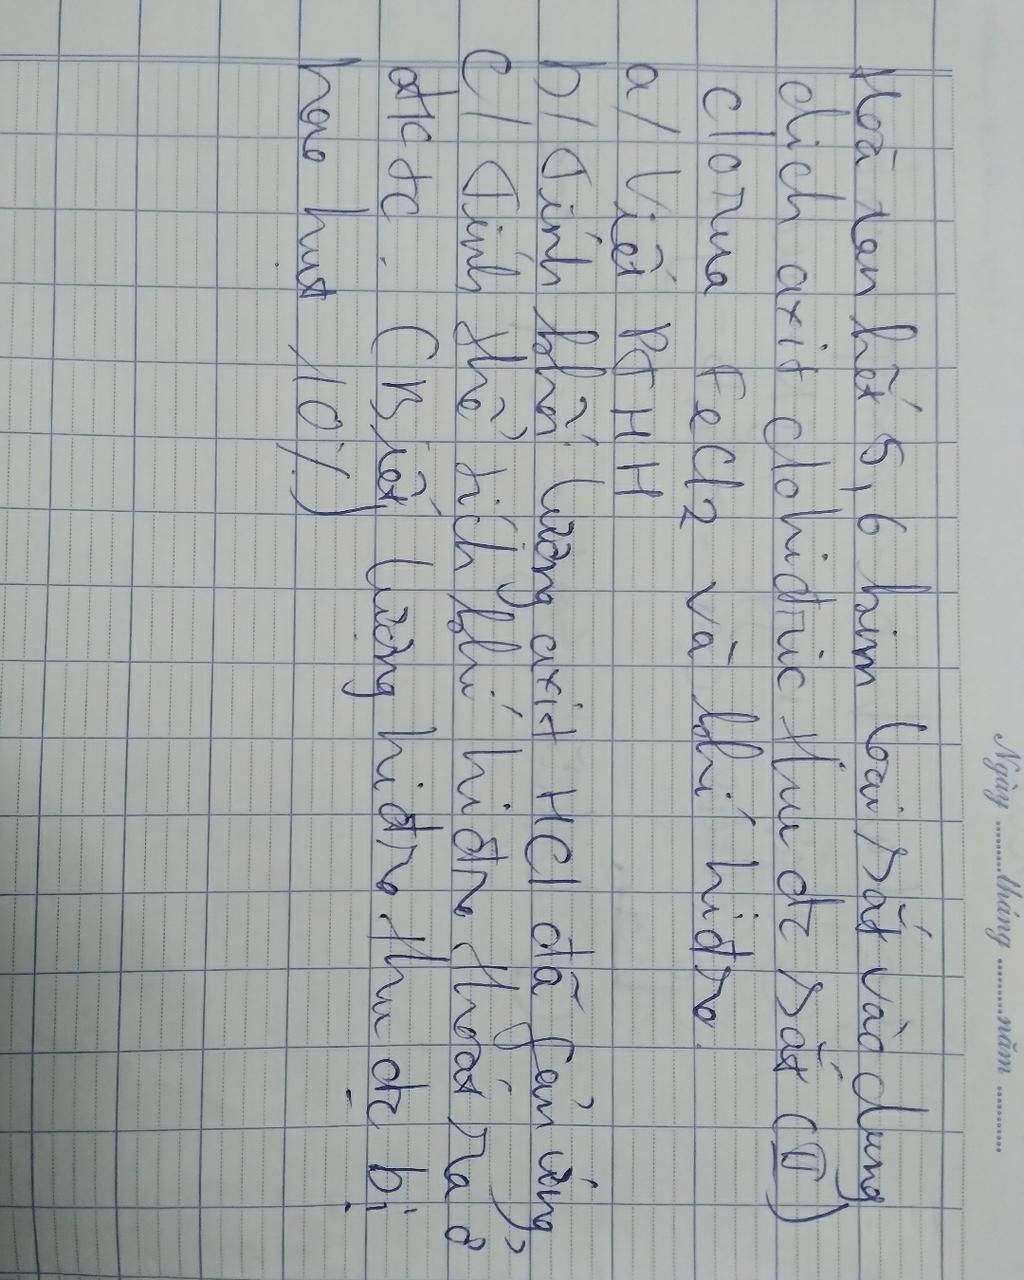 Ngày ..........tháng ..........năm ..........
Hoà tan hết 5,6 kim loại sắt vào dung
dịch axit clohiđric thu đc sắt (II)
clorua FeCl2 và khí hiđro.
a/ Viết PTHH
b/ Tính khối lượng axit HCl đã fản ứng
c/ Tính thể tích khí hiđro thoát ra ở
đktc. (Biết lượng hiđro thu đc bị
hao hụt 10%)